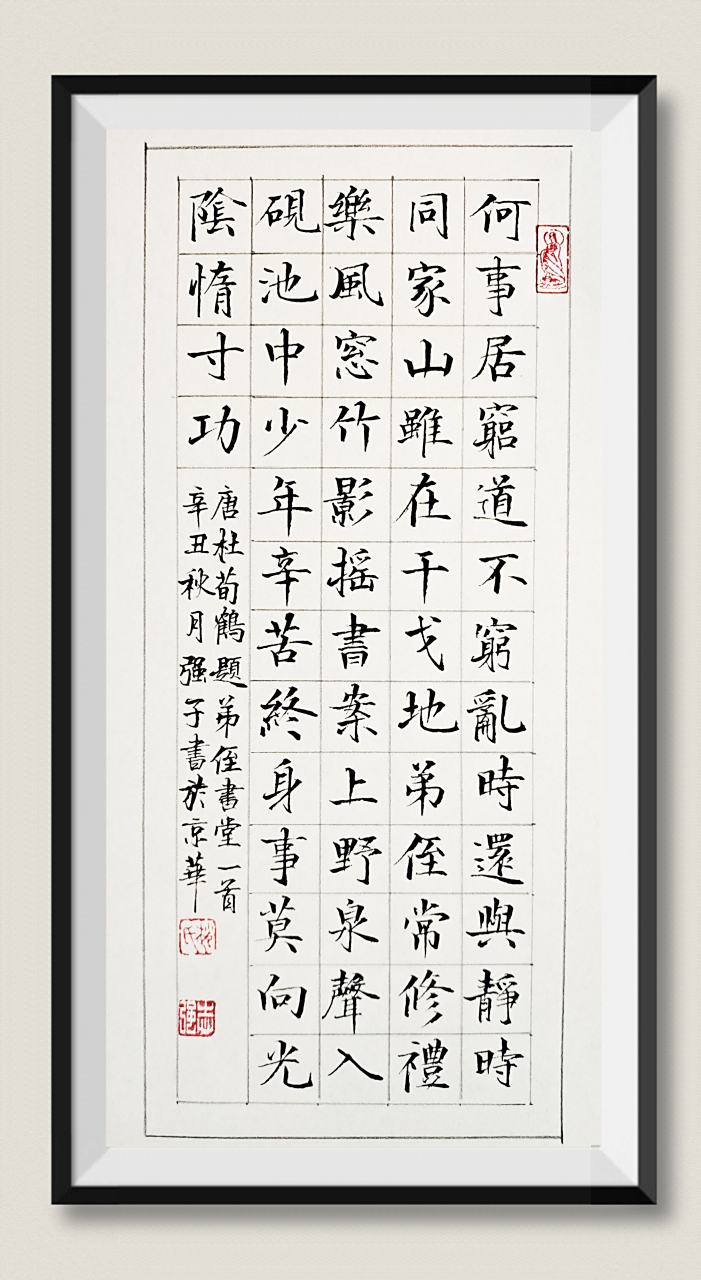 何事居窮道不窮亂時還與靜時
同家山雖在干戈地弟侄常修禮
樂風窓竹影摇書案上野泉聲入
硯池中少年辛苦終身事莫向光
陰惰寸功
唐杜荀鶴題弟侄書堂一首
辛丑秋月强子書於京華
志强